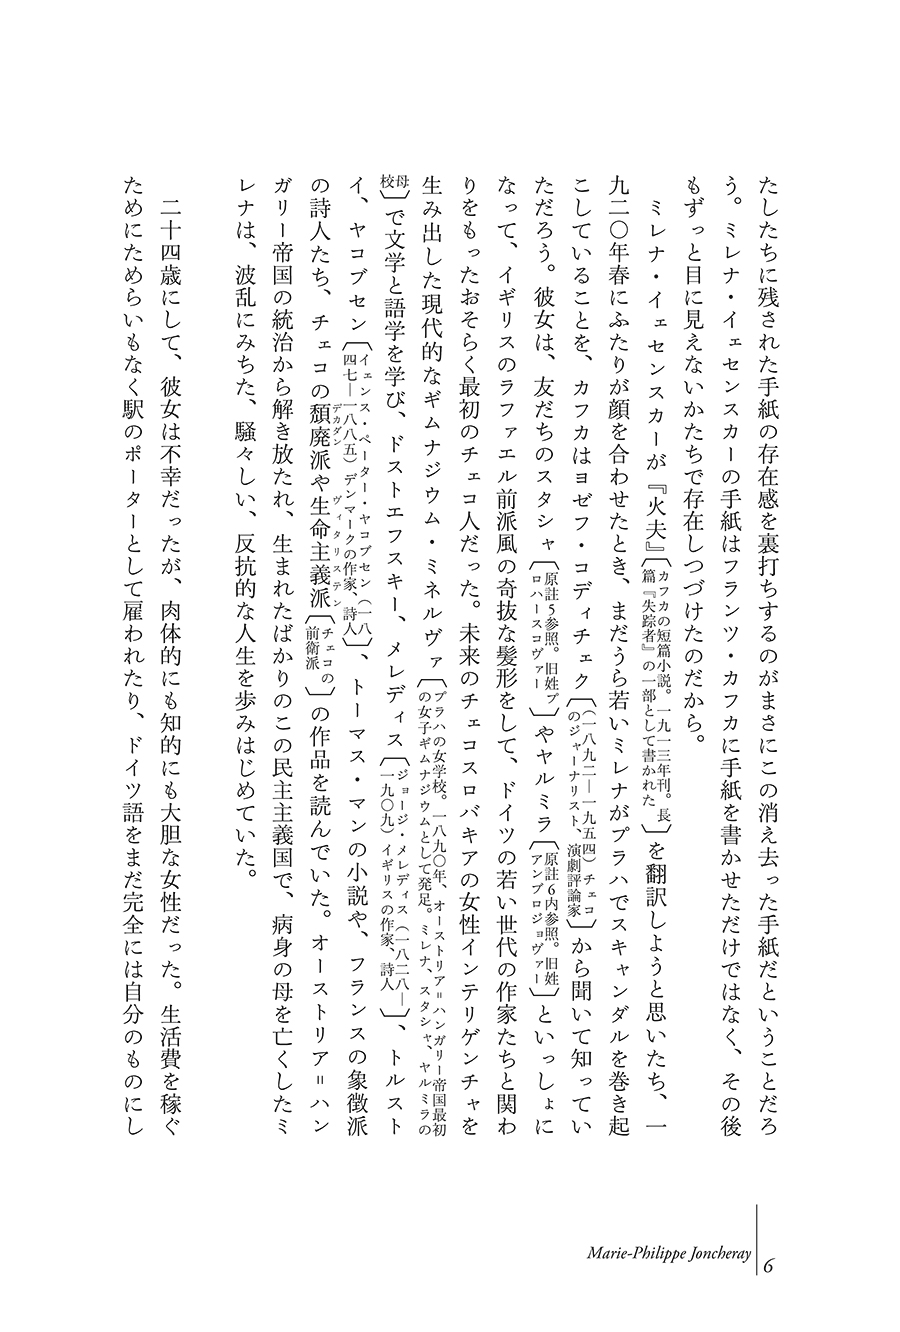 たしたちに残された手紙の存在感を裏打ちするのがまさにこの消え去った手紙だということだろ
う。ミレナ・イェセンスカーの手紙はフランツ・カフカに手紙を書かせただけではなく、その後
もずっと目に見えないかたちで存在しつづけたのだから。
ミレナ・イェセンスカーが『火夫』〔カフカの短篇小説。一九一三年刊。長篇『失踪者』の一部として書かれた〕を翻訳しようと思いたち、一
九二〇年春にふたりが顔を合わせたとき、まだうら若いミレナがプラハでスキャンダルを巻き起
こしていることを、カフカはヨゼフ・コディチェク〔（一八九二―一九五四）チェコのジャーナリスト、演劇評論家〕から聞いて知ってい
ただろう。彼女は、友だちのスタシャ〔原註5参照。旧姓プロハースコヴァー〕やヤルミラ〔原註6内参照。旧姓アンブロジョヴァー〕といっしょに
なって、イギリスのラファエル前派風の奇抜な髪形をして、ドイツの若い世代の作家たちと関わ
りをもったおそらく最初のチェコ人だった。未来のチェコスロバキアの女性インテリゲンチャを
生み出した現代的なギムナジウム・ミネルヴァ〔プラハの女学校。一八九〇年、オーストリア＝ハンガリー帝国最初の女子ギムナジウムとして発足。ミレナ、スタシャ、ヤルミラの
母校〕で文学と語学を学び、ドストエフスキー、メレディス〔ジョージ・メレディス（一八二八―一九〇九）イギリスの作家、詩人〕、トルスト
イ、ヤコブセン〔イェンス・ペーター・ヤコブセン（一八四七―一八八五）デンマークの作家、詩人〕、トーマス・マンの小説や、フランスの象徴派
の詩人たち、チェコの頽廃派（デカダン）や生命主義派（ヴィタリステン）〔チェコの前衛派。〕の作品を読んでいた。オーストリア＝ハン
ガリー帝国の統治から解き放たれ、生まれたばかりのこの民主主義国で、病身の母を亡くしたミ
レナは、波乱にみちた、騒々しい、反抗的な人生を歩みはじめていた。
二十四歳にして、彼女は不幸だったが、肉体的にも知的にも大胆な女性だった。生活費を稼ぐ
ためにためらいもなく駅のポーターとして雇われたり、ドイツ語をまだ完全には自分のものにし
Marie-Philippe Joncheray
6